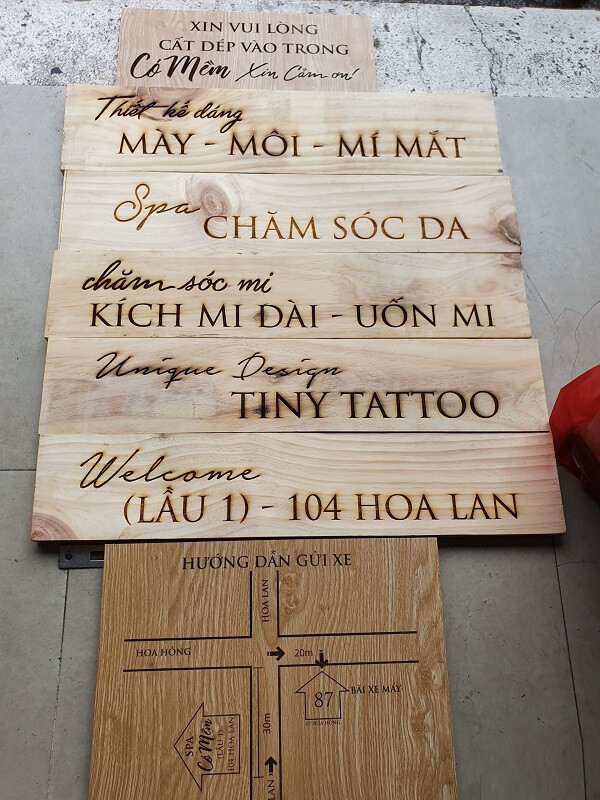 XIN VUI LÒNG
CẤT DÉP VÀO TRONG
Cỏ Mềm Xin Cảm ơn!
Thiết kế dáng
MÀY - MÔI - MÍ MẮT
Spa
CHĂM SÓC DA
chăm sóc mi
KÍCH MI DÀI - UỐN MI
Unique Design
TINY TATTOO
Welcome
(LẦU 1) - 104 HOA LAN
HƯỚNG DẪN GỬI XE
HOA LAN
HOA HỒNG
20m
87
87 HOA HỒNG
BÃI XE MÁY
30m
SPA
Cỏ Mềm
(LẦU 1)
104 HOA LAN
LAN